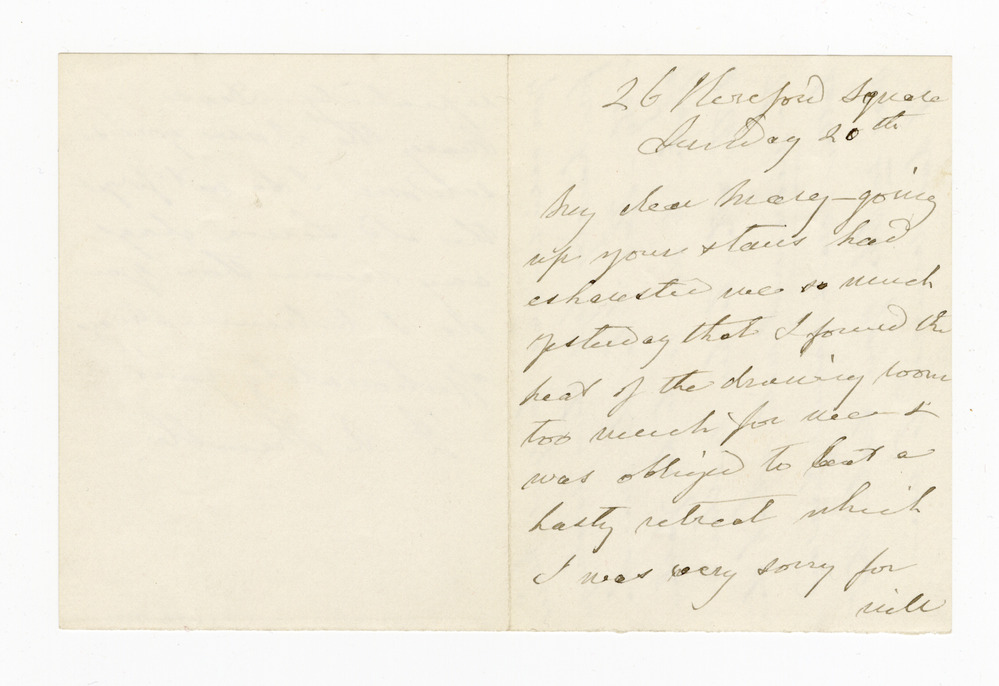 26 Hereford Square
Sunday 20th
My dear Mary - going
up your stairs had
exhausted me so much
yesterday that I found the
heat of the drawing room
too much for me &
was obliged to beat a
hasty retreat which
I was very sorry for
will